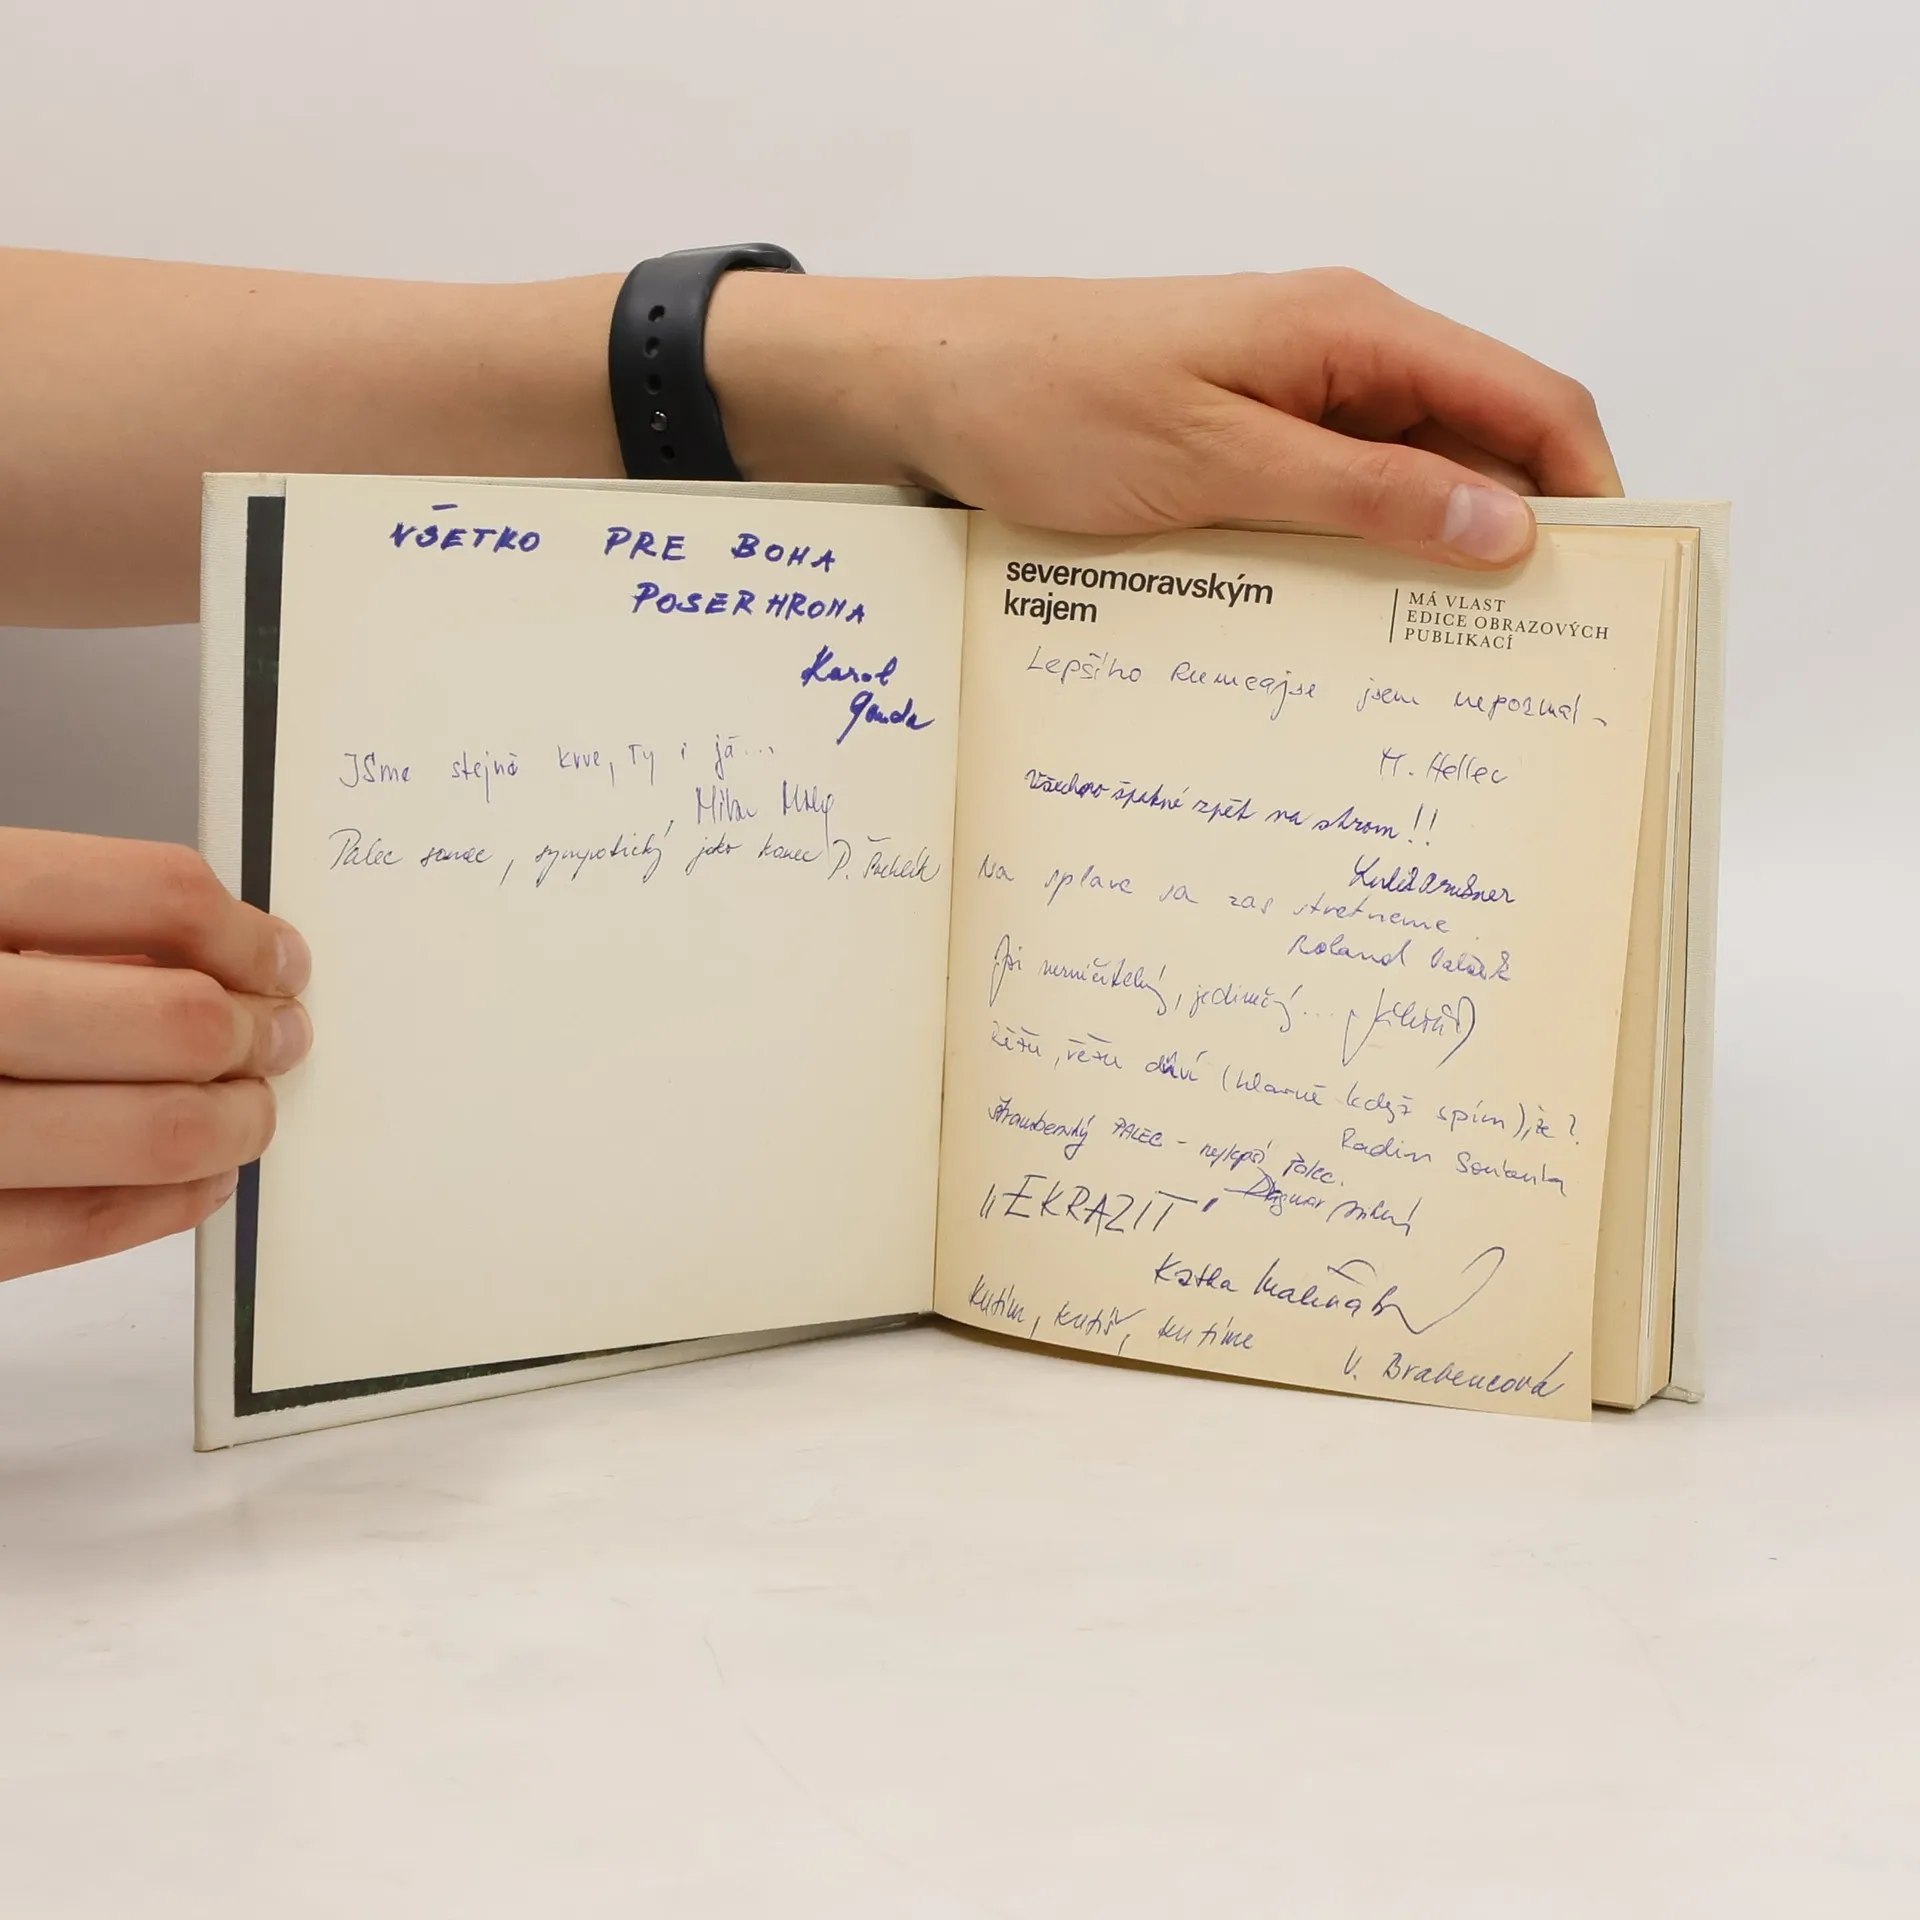 VŠETKO PRE BOHA
POSERHROMA
Karol
JSme stejné krve, Ty i já...
Milan
Palec samec, sympatický jako konec P.
severomoravským
krajem
MÁ VLAST
EDICE OBRAZOVÝCH
PUBLIKACÍ
Lepšího Rumcajse jsem nepoznal -
M. Heller
Všechno špatné zpět na strom!!
Na splave sa zas stretneme
Roland
Jsi nezničitelný, jedinečný...
Řežu, řežu dříví (hlavně když spím), že?
Radim
štramberský PALEC - nejlepší Palec.
Dagmar
„EKRAZIT"
Katka
kutím, kutíš, kutíme
V. Brabencová